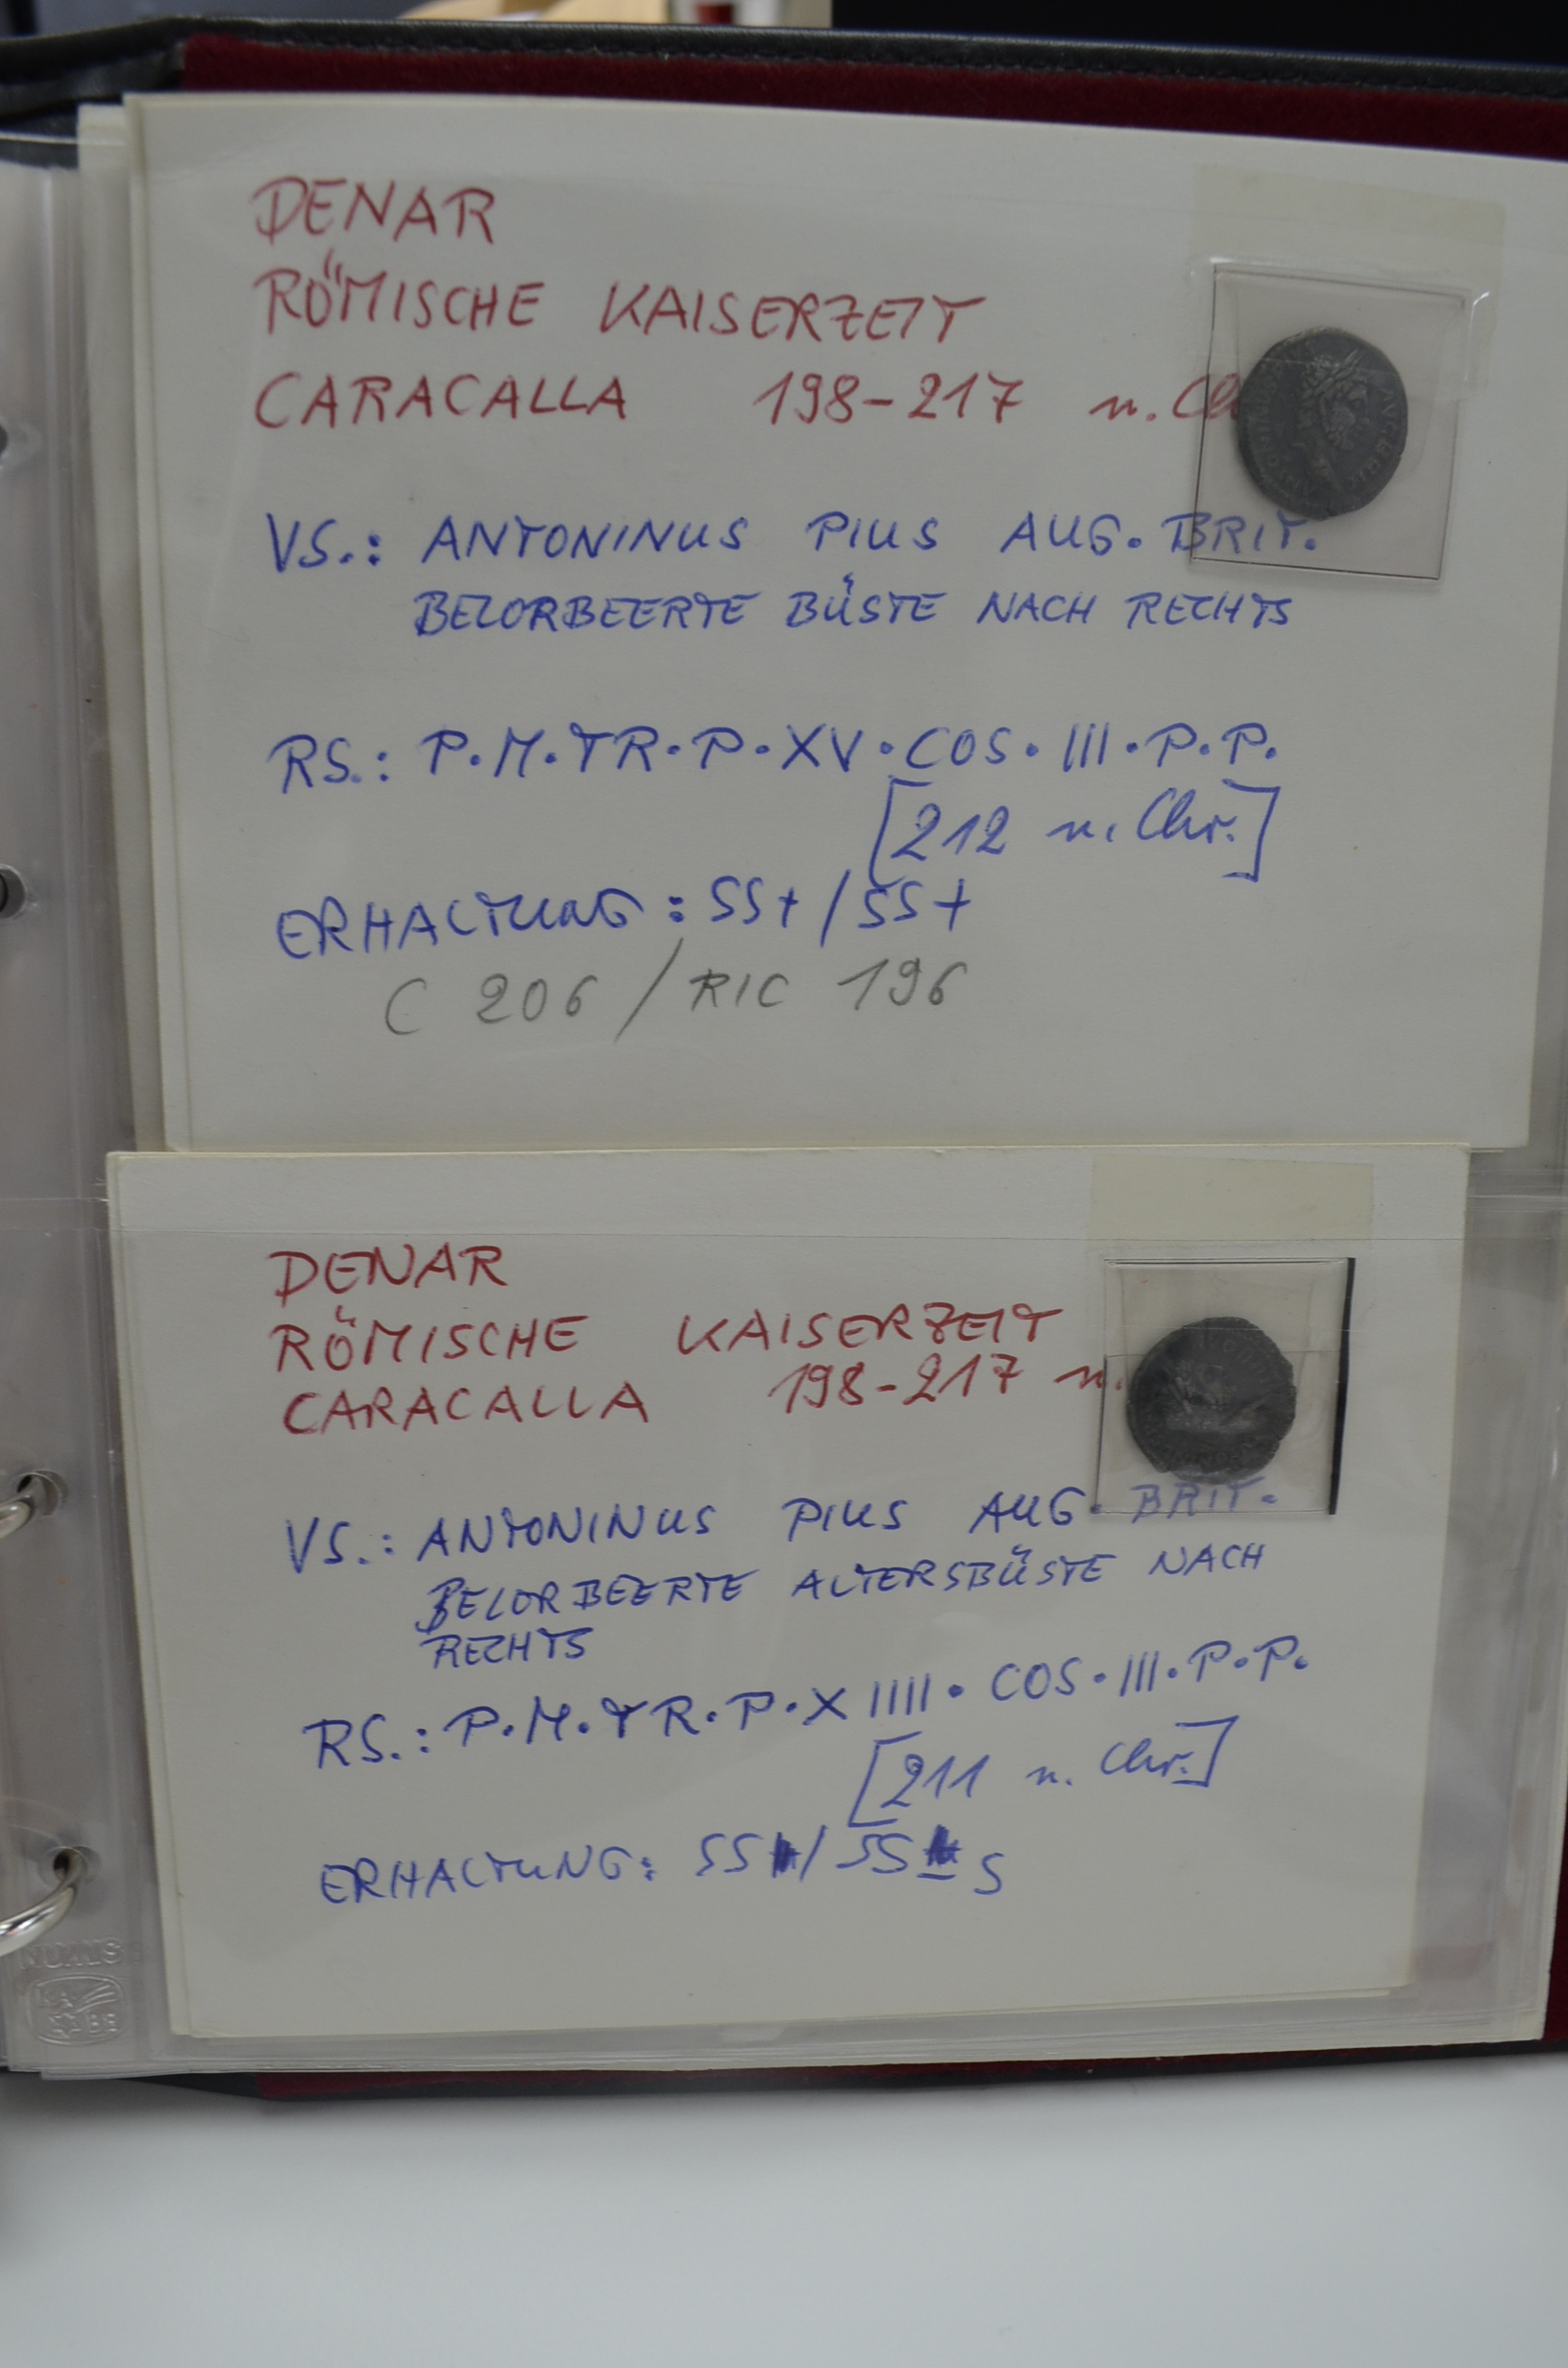 DENAR
RÖMISCHE KAISERZEIT
CARACALLA 198-217 n. Ch
VS.: ANTONINUS PIUS AUG. BRIT.
BELORBEERTE BÜSTE NACH RECHTS
RS.: P.M.TR.P.XV.COS.III.P.P.
[212 n. Chr.]
ERHALTUNG: SS+/SS+
C 206 / RIC 196
DENAR
RÖMISCHE KAISERZEIT
CARACALLA 198-217 n.
VS.: ANTONINUS PIUS AUG. BRIT.
BELORBEERTE ALTERSBÜSTE NACH
RECHTS
RS.: P.M.TR.P.XIIII.COS.III.P.P.
[211 n. Chr.]
ERHALTUNG: SS/SS S
NUMIS
KA
BE